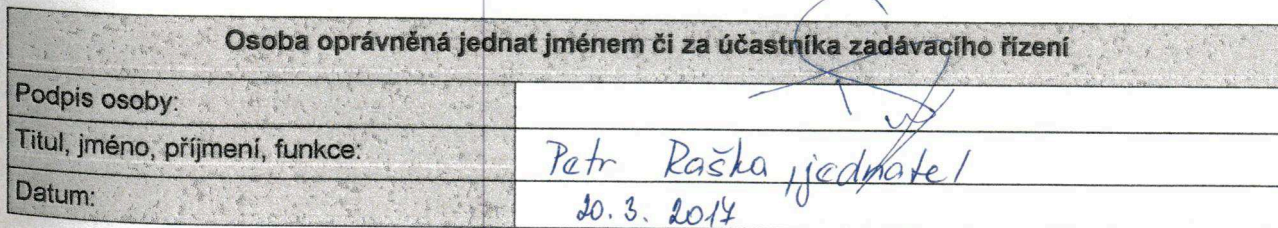 Osoba oprávněná jednat jménem či za účastníka zadávacího řízení
Podpis osoby:
Titul, jméno, příjmení, funkce: Petr Raška, jednatel
Datum: 20. 3. 2017